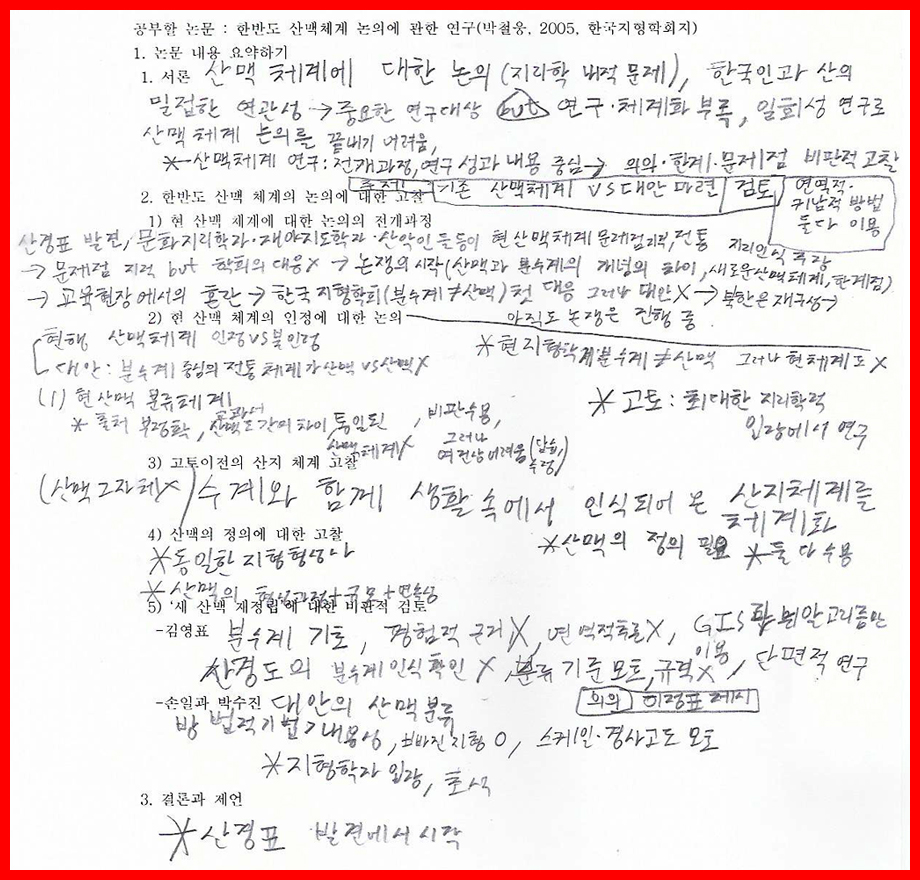 공부할 논문 : 한반도 산맥체계 논의에 관한 연구(박철웅, 2005, 한국지형학회지)
1. 논문 내용 요약하기
1. 서론 산맥 체계에 대한 논의 (지리학 내적 문제), 한국인과 산의
밀접한 연관성 → 중요한 연구대상 but 연구·체계화 부족, 일회성 연구로
산맥체계 논의를 끝내기 어려움,
*-산맥체계 연구: 전개과정, 연구성과 내용 중심→ 의의·한계·문제점 비판적 고찰
주제 기존 산맥체계 vs 대안 마련 검토
연역적·
귀납적 방법
둘다 이용
2. 한반도 산맥 체계의 논의에 대한 고찰
1) 현 산맥 체계에 대한 논의의 전개과정
산경표 발견, 문화지리학과·재야지도학과·산악인 들 등이 현 산맥체계 문제점지적, 전통 지리인식 주장
→ 문제점 지적 but 학회의 대응 X → 논쟁의 시작(산맥과 분수계의 개념의 차이, 새로운산맥체계, 한계점)
→ 교육현장에서의 혼란 → 한국지형학회(분수계≠산맥) 첫 대응 그러나 대안X → 북한은 재구성→
2) 현 산맥 체계의 인정에 대한 논의
아직도 논쟁은 진행 중
현행 산맥체계 인정vs불인정
*현지형학계 분수계≠산맥 그러나 현체계도 X
대안: 분수계 중심의 전통체계가 산맥 vs 산맥X
(1) 현산맥 분류체계
* 출처 부정확, 교과서 산맥도 간의 차이 통일된 산맥체계X, 비판수용, 그러나 여전히 어려움 (답습, 수정)
* 고토: 최대한 지리학적
입장에서 연구
3) 고토이전의 산지 체계 고찰
(산맥 그자체X) / 수계와 함께 생활 속에서 인식되어 온 산지체계를
체계화
4) 산맥의 정의에 대한 고찰
*산맥의 정의 필요 *둘 다 수용
*동일한 지형형성사
*산맥의 형성과정+규모+연속성
5) '새 산맥 재정립'에 대한 비판적 검토
-김영표 분수계 기초, 경험적 근거X, 연역적추론X, GIS와 알고리즘만 이용
산경도의 분수계인식확인 X, 분류 기준 모호, 규격X, 단편적 연구
-손일과 박수진 대안의 산맥분류
의의 이정표 제시
방법적기법 내용성, 빠진지형 O, 스케일·경사고도 모호
*지형학자 입장, 초석
3. 결론과 제언
*산경표 발견에서 시작